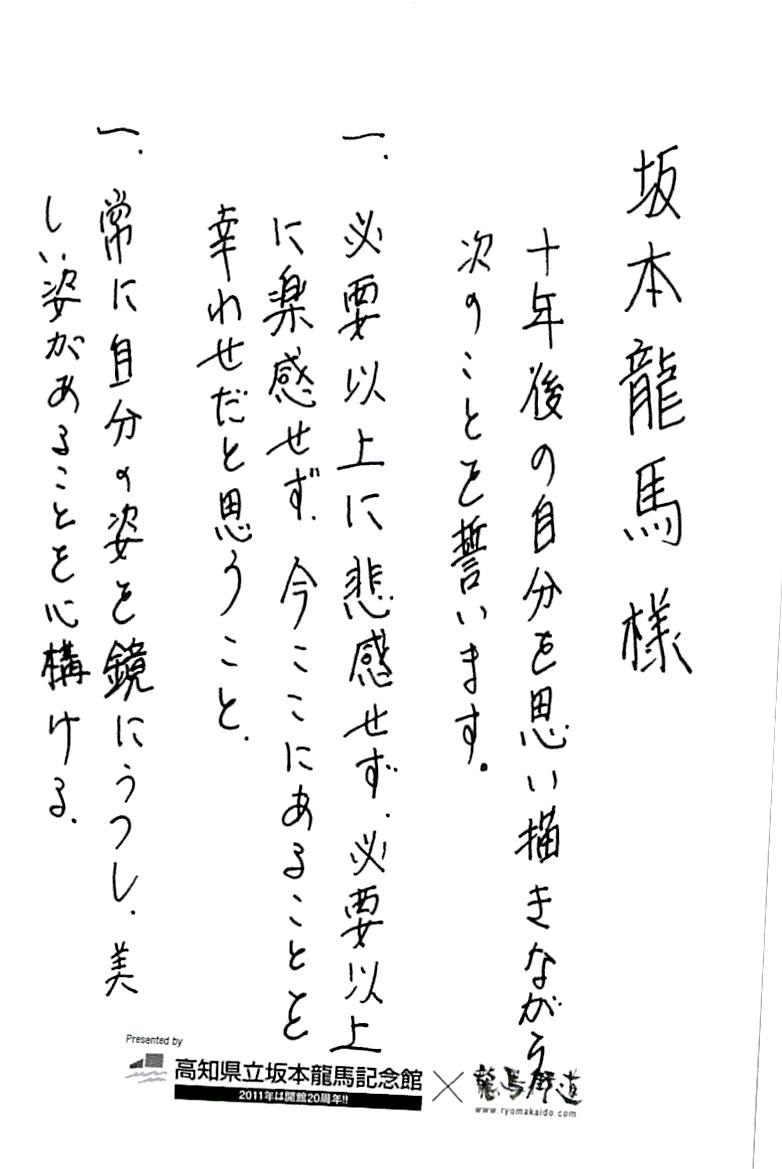 坂本龍馬様
十年後の自分を思い描きながら
次のことを誓います。
一. 必要以上に悲感せず、必要以上
に楽感せず、今ここにあることと
幸わせだと思うこと.
一. 常に自分の姿を鏡にうつし、美
しい姿があることを心構ける.
Presented by
高知県立坂本龍馬記念館
2011年は開館20周年!!
×
龍馬街道
www.ryomakaido.com